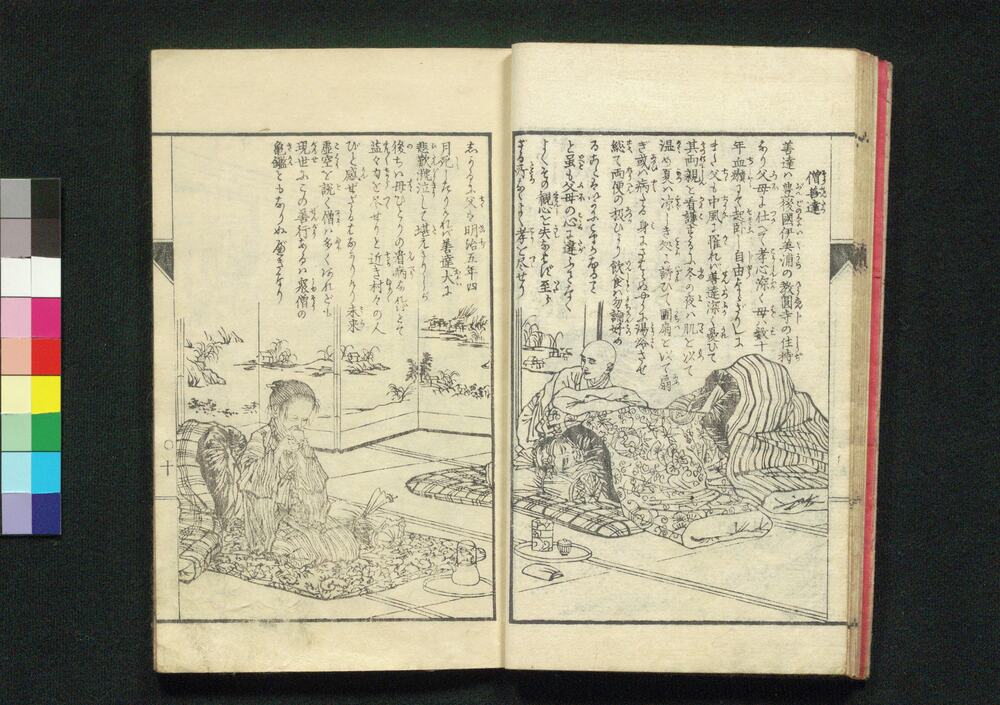 僧善達
善達ハ豊後國伊美浦の教圓寺の住持
あり父母に仕へて孝心深く母ハ数十
年血積にて起臥自由ならざりしに
また父も中風に罹れバ善達深く憂ひて
其両親を看護するに冬の夜ハ肌を以て
温め夏ハ涼しき処に請ひて團扇を以て扇
ぎ或ハ病る身に
総て両便の扱ひより飲食ハ勿論好め
る
と雖も父母の心に違ふことなく
よくその観心を失ハず至
ざる所なくよく孝を尽せり
しかるに父ハ明治五年四
月死しなりけれバ善達大に
悲歎涕泣して堪えざりしが
後ちハ母ひとりの看病なれバとて
益々力を尽せりと近き村々の人
びと感せざるもなかりけり未来
虚空を説く僧ハ多くあれども
現世にこの善行あるハ衆僧の
亀鑑ともなりぬべきなり
〇十